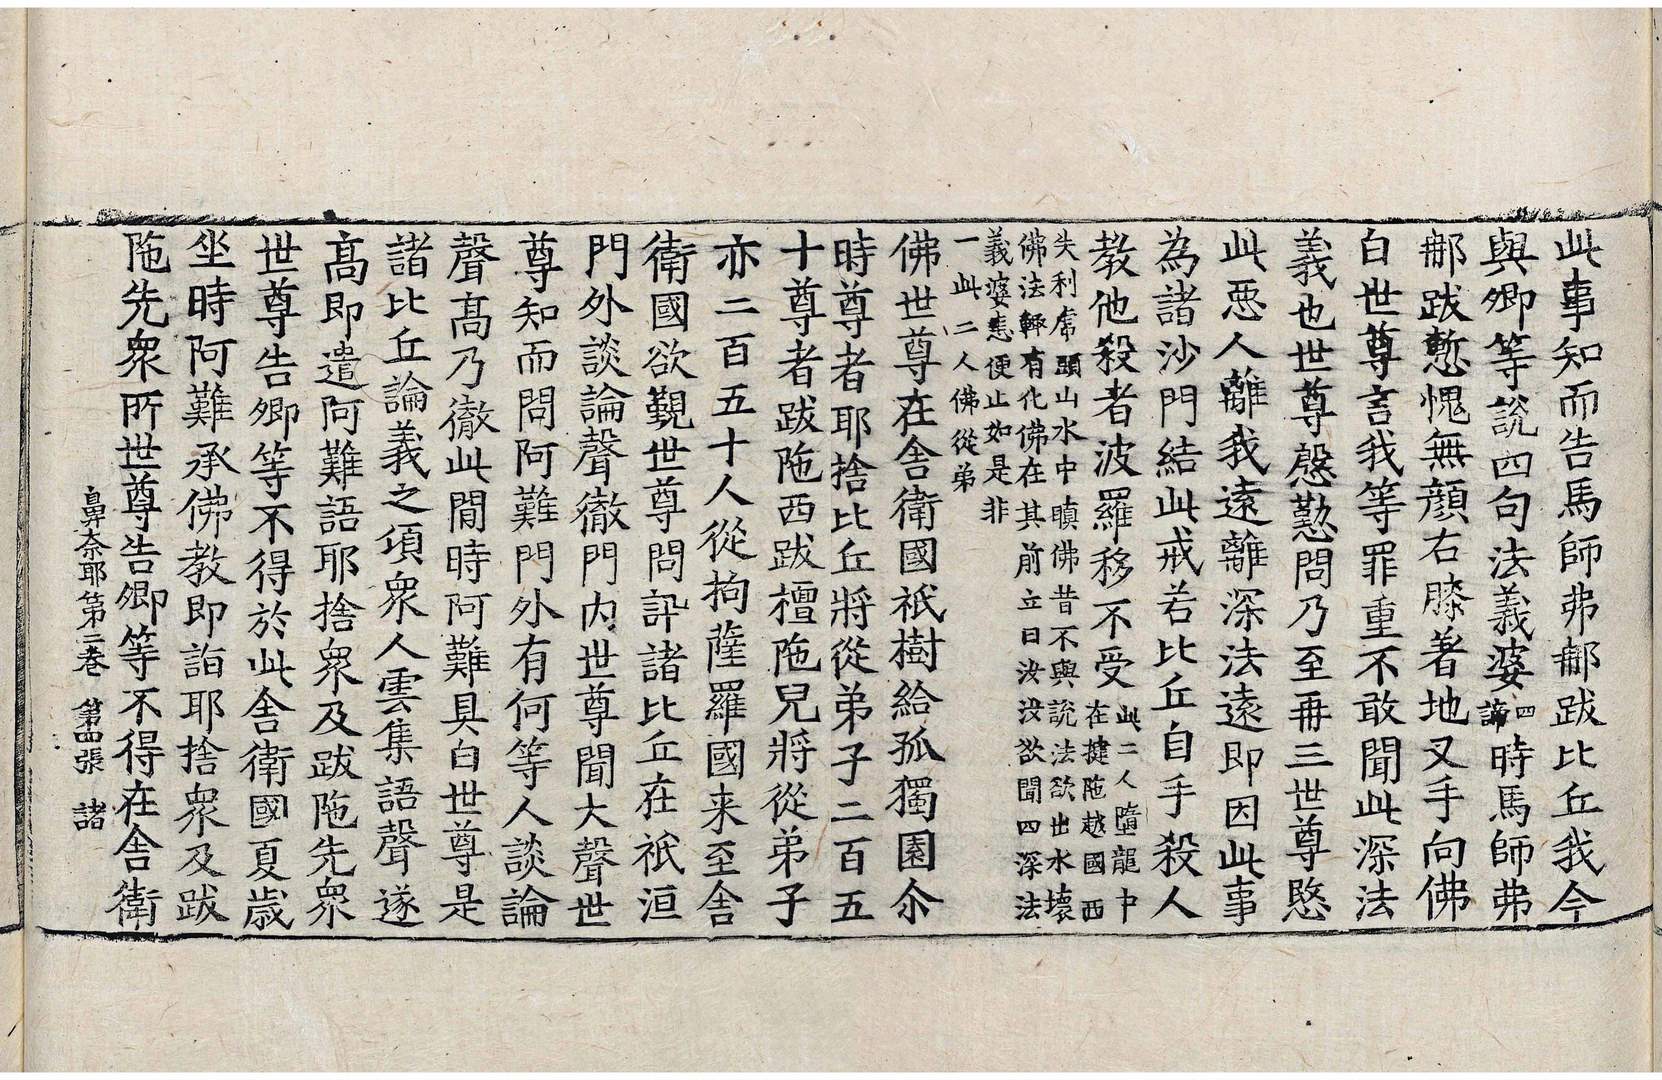 此事知而告馬師弗𨚗跋比丘我今
與卿等說四句法義婆四諦時馬師弗
𨚗跋慙愧無顔右膝著地叉手向佛
白世尊言我等罪重不敢聞此深法
義也世尊慇懃問乃至再三世尊愍
此惡人離我遠離深法遠即因此事
為諸沙門結此戒若比丘自手殺人
教他殺者波羅移不受此二人墮龍中
在揵陁越國西
失利席頭山水中瞋佛昔不與說法欲出水壞
佛法輙有化佛在其前立曰汝没欲聞四深法
義婆恚便止如是非
一此二人佛從弟
佛世尊在舍衛國祇樹給孤獨園尒
時尊者耶捨比丘將從弟子二百五
十尊者跋陁西跋檀陁兒將從弟子
亦二百五十人從拘薩羅國来至舍
衛國欲覲世尊問訊諸比丘在祇洹
門外談論聲徹門内世尊聞大聲世
尊知而問阿難門外有何等人談論
聲髙乃徹此閒時阿難具白世尊是
諸比丘論義之湏衆人雲集語聲遂
髙即遣阿難語耶捨衆及跋陁先衆
世尊告卿等不得於此舍衛國夏歲
坐時阿難承佛教即詣耶捨衆及跋
陁先衆所世尊告卿等不得在舍衛
鼻奈耶第二卷 第四張 諸